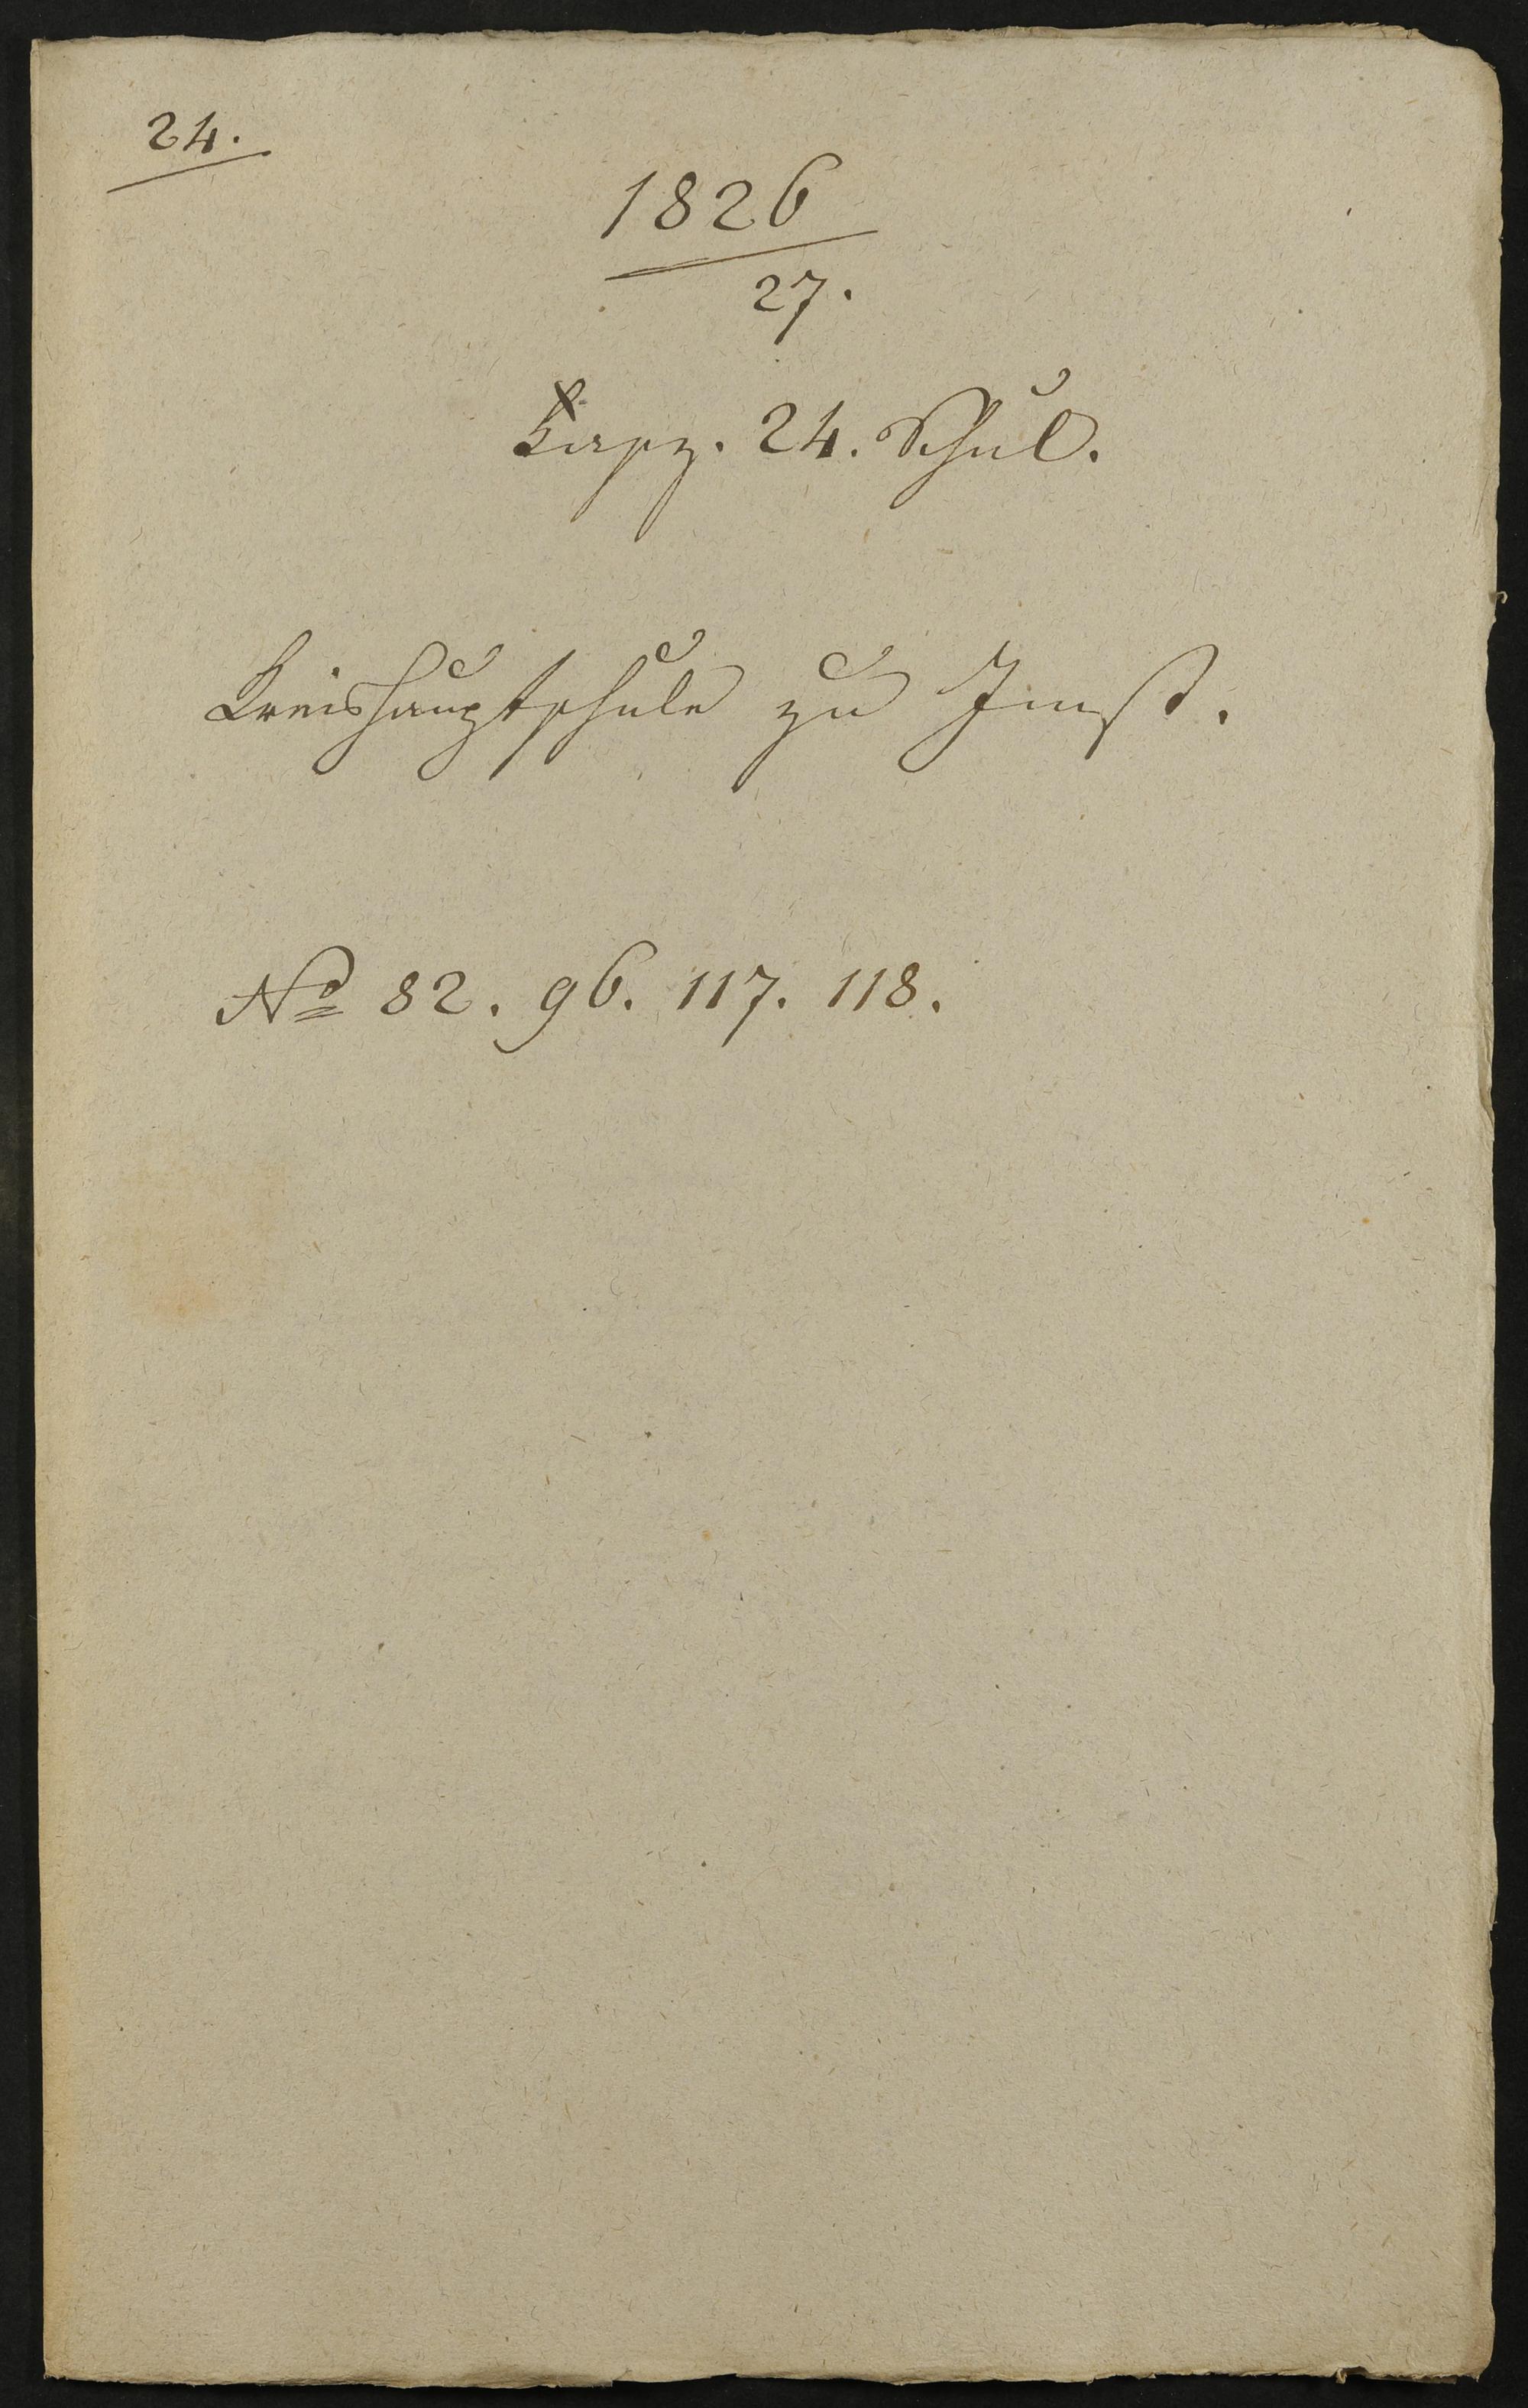 24.
1826
27.
24. Schul.
Kreishauptschule zu Imst.
No 82. 96. 117. 118.